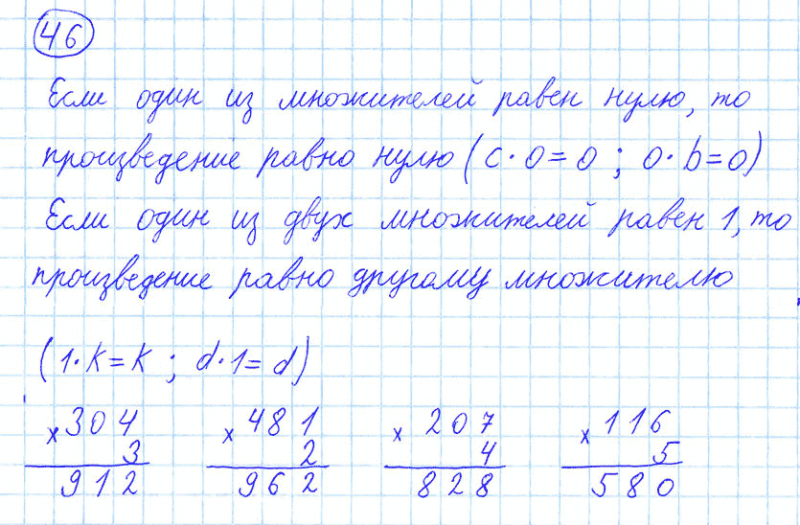 46
Если один из множителей равен нулю, то
произведение равно нулю (c·0=0; 0·b=0)
Если один из двух множителей равен 1, то
произведение равно другому множителю
(1·k=k; d·1=d)
×304 ×481 ×207 ×116
3 2 4 5
912 962 828 580